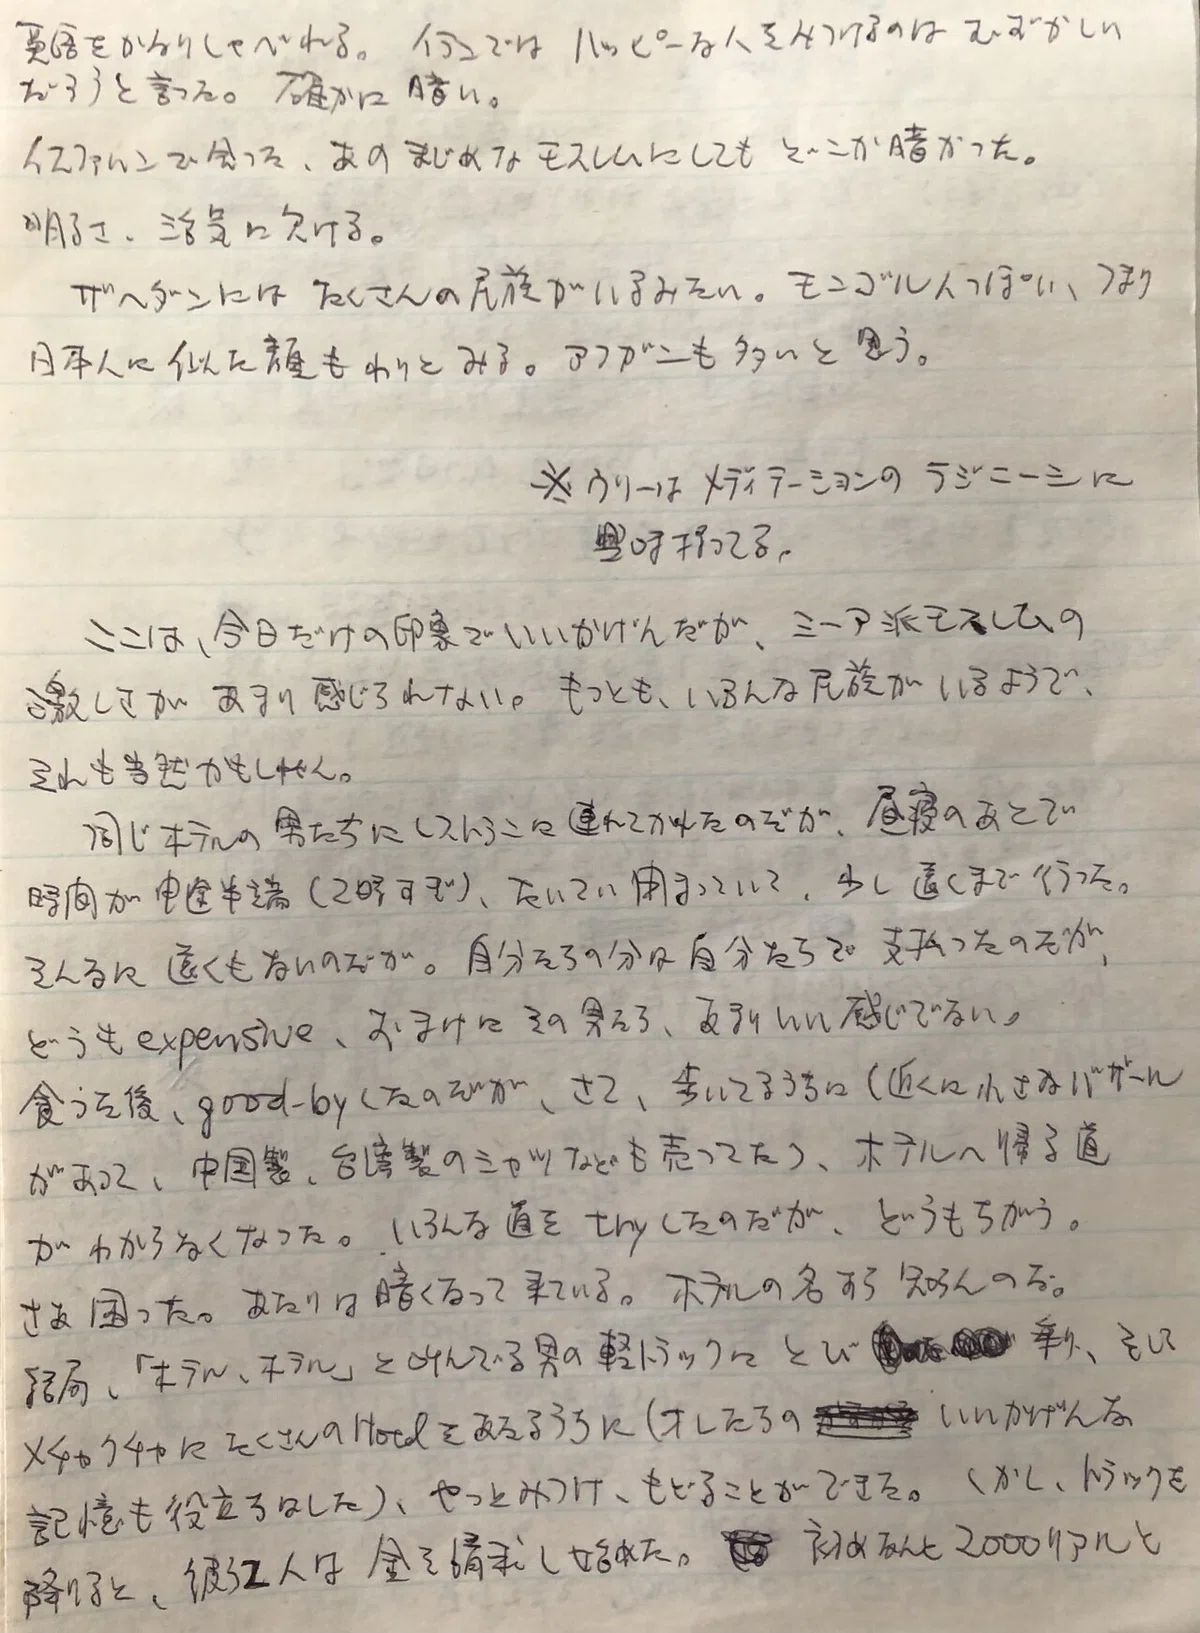 英語をかなりしゃべれる。イランでは ハッピーな人をみつけるのは むずかしい
だろうと言った。確かに 暗い。
イスファハンで会った、あの まじめなモスレムにしても どこか暗かった。
明るさ、活気に欠ける。
ザヘダンには たくさんの民族がいるみたい。モンゴル人っぽい、つまり
日本人に似た 顔も わりと みる。アフガンも多いと 思う。
※ ウリーは メディテーションの ラジニーシに
興味持ってる。
ここは、今日だけの印象でいいかげんだが、シーア派モスレムの
激しさが あまり 感じられない。もっとも、いろんな民族が いるようで、
それも当然かもしれん。
同じホテルの 男たちに レストランに連れてかれたのだが、昼寝のあとで
時間が 中途半端(2時すぎ)、たいてい 閉まっていて、少し 遠くまで行った。
そんなに 遠くもないのだが。自分たちの分は自分たちで 支払ったのだが、
どうも expensive、おまけに その男たち、あまりいい感じでない。
食った後、good-byしたのだが、さて、歩いてるうちに(近くに小さなバザール
があって、中国製、台湾製のシャツなども売ってた)、ホテルへ帰る道
が わからなくなった。いろんな道を tryしたのだが、どうもちがう。
さあ 困った。あたりは 暗くなって 来ている。ホテルの名すら 知らんのだ。
結局、「ホテル、ホテル」と叫んでる男の 軽トラックに とび 乗り、そして
メチャクチャに たくさんのHotelを あたるうちに(オレたちの いいかげんな
記憶も 役立ちはした)、やっとみつけ、もどることができた。しかし、トラックを
降りると、彼ら2人は 金を請求し始めた。 初めなんと 2000リアルと